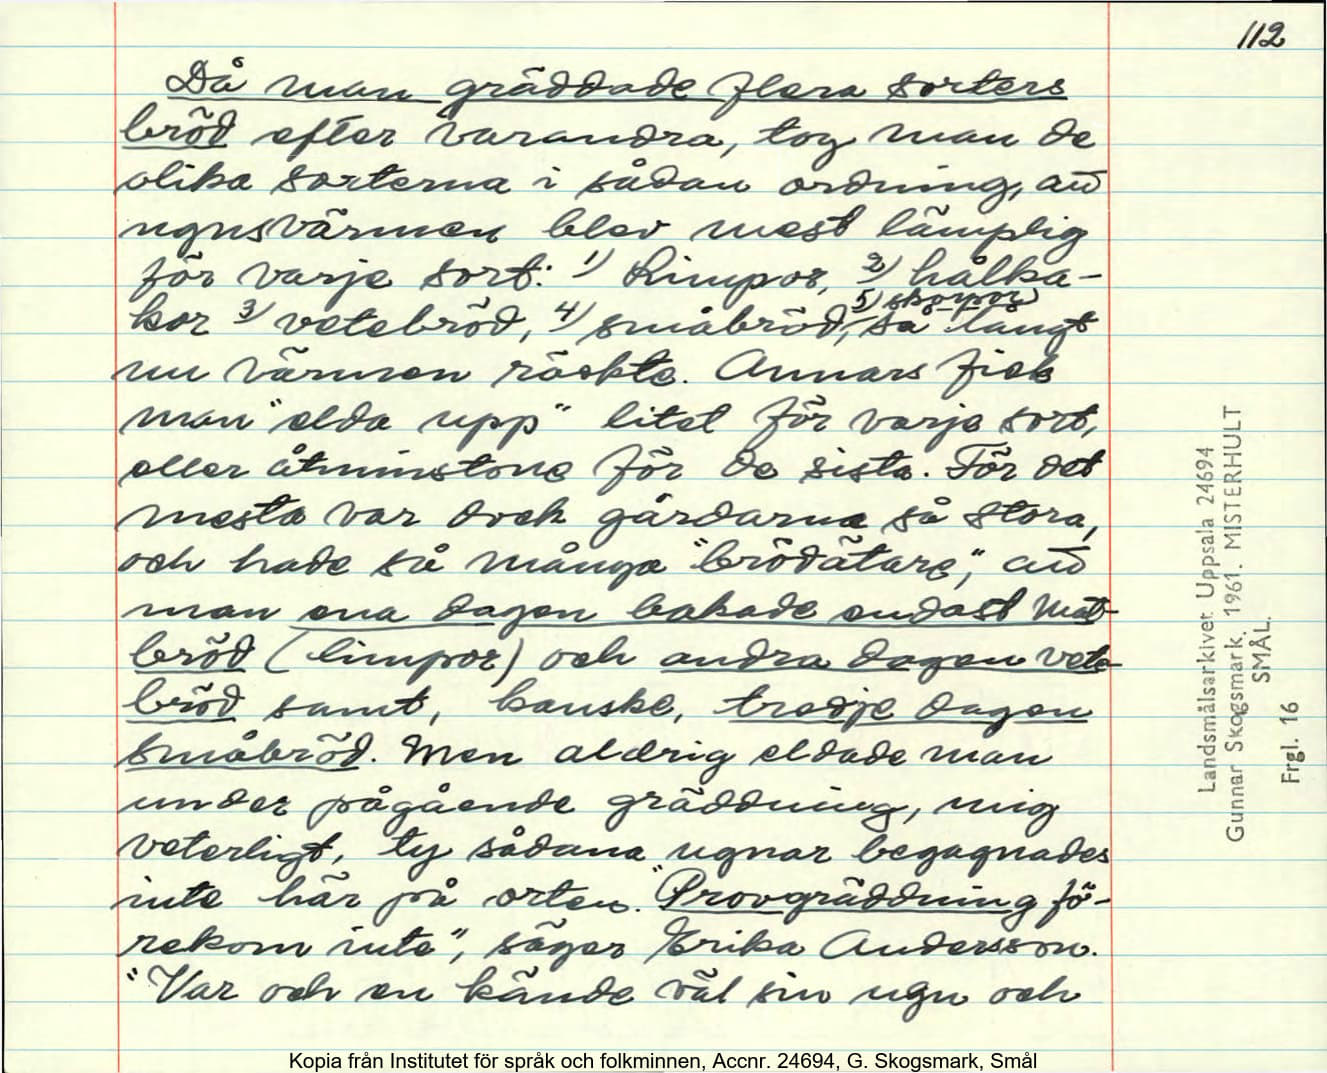 112
Då man gräddade flera sorters
bröd efter varandra, tog man de
olika sorterna i sådan ordning, att
ugnsvärmen blev mest lämplig
för varje sort: 1) Limpor, 2) hålka-
kor 3) vetebröd, 4) småbröd, 5) skorpor, så långt
nu värmen räckte. Annars fick
man "elda upp" litet för varje sort,
eller åtminstone för de sista. För det
mesta var dock gårdarna så stora,
och hade så många "brödätare", att
man ena dagen bakade endast mat-
bröd (limpor) och andra dagen vete-
bröd samt, kanske, tredje dagen
småbröd. Men aldrig eldade man
under pågående gräddning, mig
veterligt, ty sådana ugnar begagnades
inte här på orten. "Provgräddning fö-
rekom inte", säger Erika Andersson.
"Var och en kände väl sin ugn och
Landsmålsarkivet Uppsala 24694
Gunnar Skogsmark. 1961. MISTERHULT
SMÅL.
Frgl. 16
Kopia från Institutet för språk och folkminnen, Accnr. 24694, G. Skogsmark, Smål